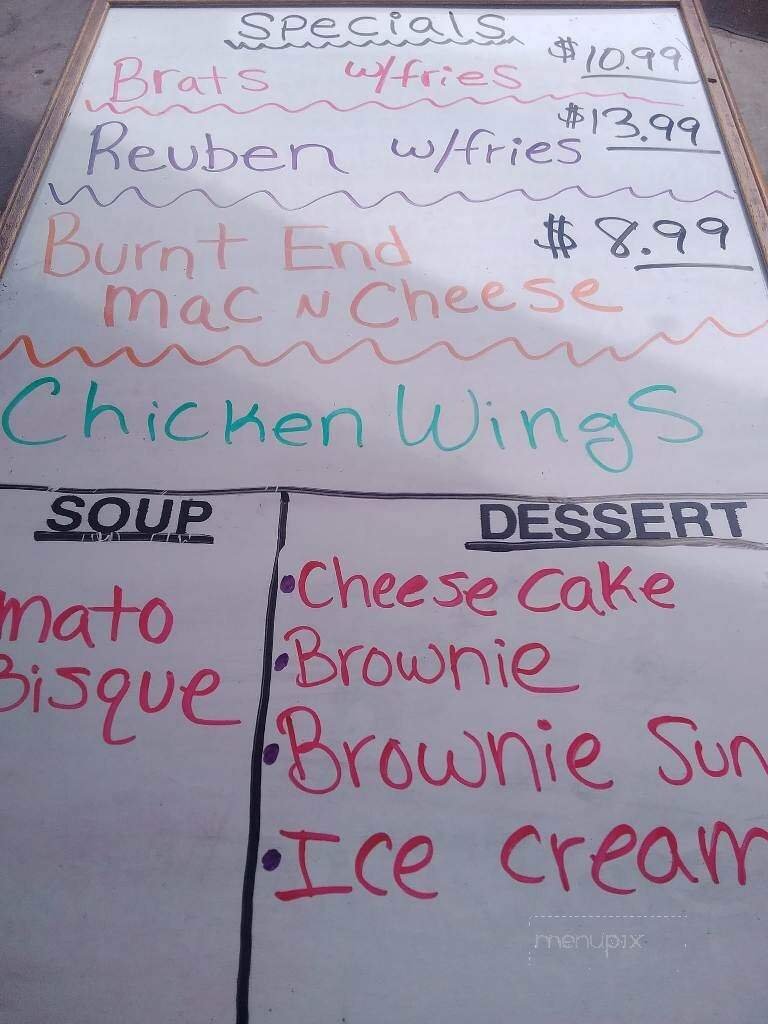 Specials
Brats w/fries $10.99
Reuben w/fries $13.99
Burnt End $8.99
mac N Cheese
Chicken Wings
SOUP
mato
Bisque
DESSERT
•Cheese Cake
•Brownie
•Brownie Sun
•Ice cream
menupix